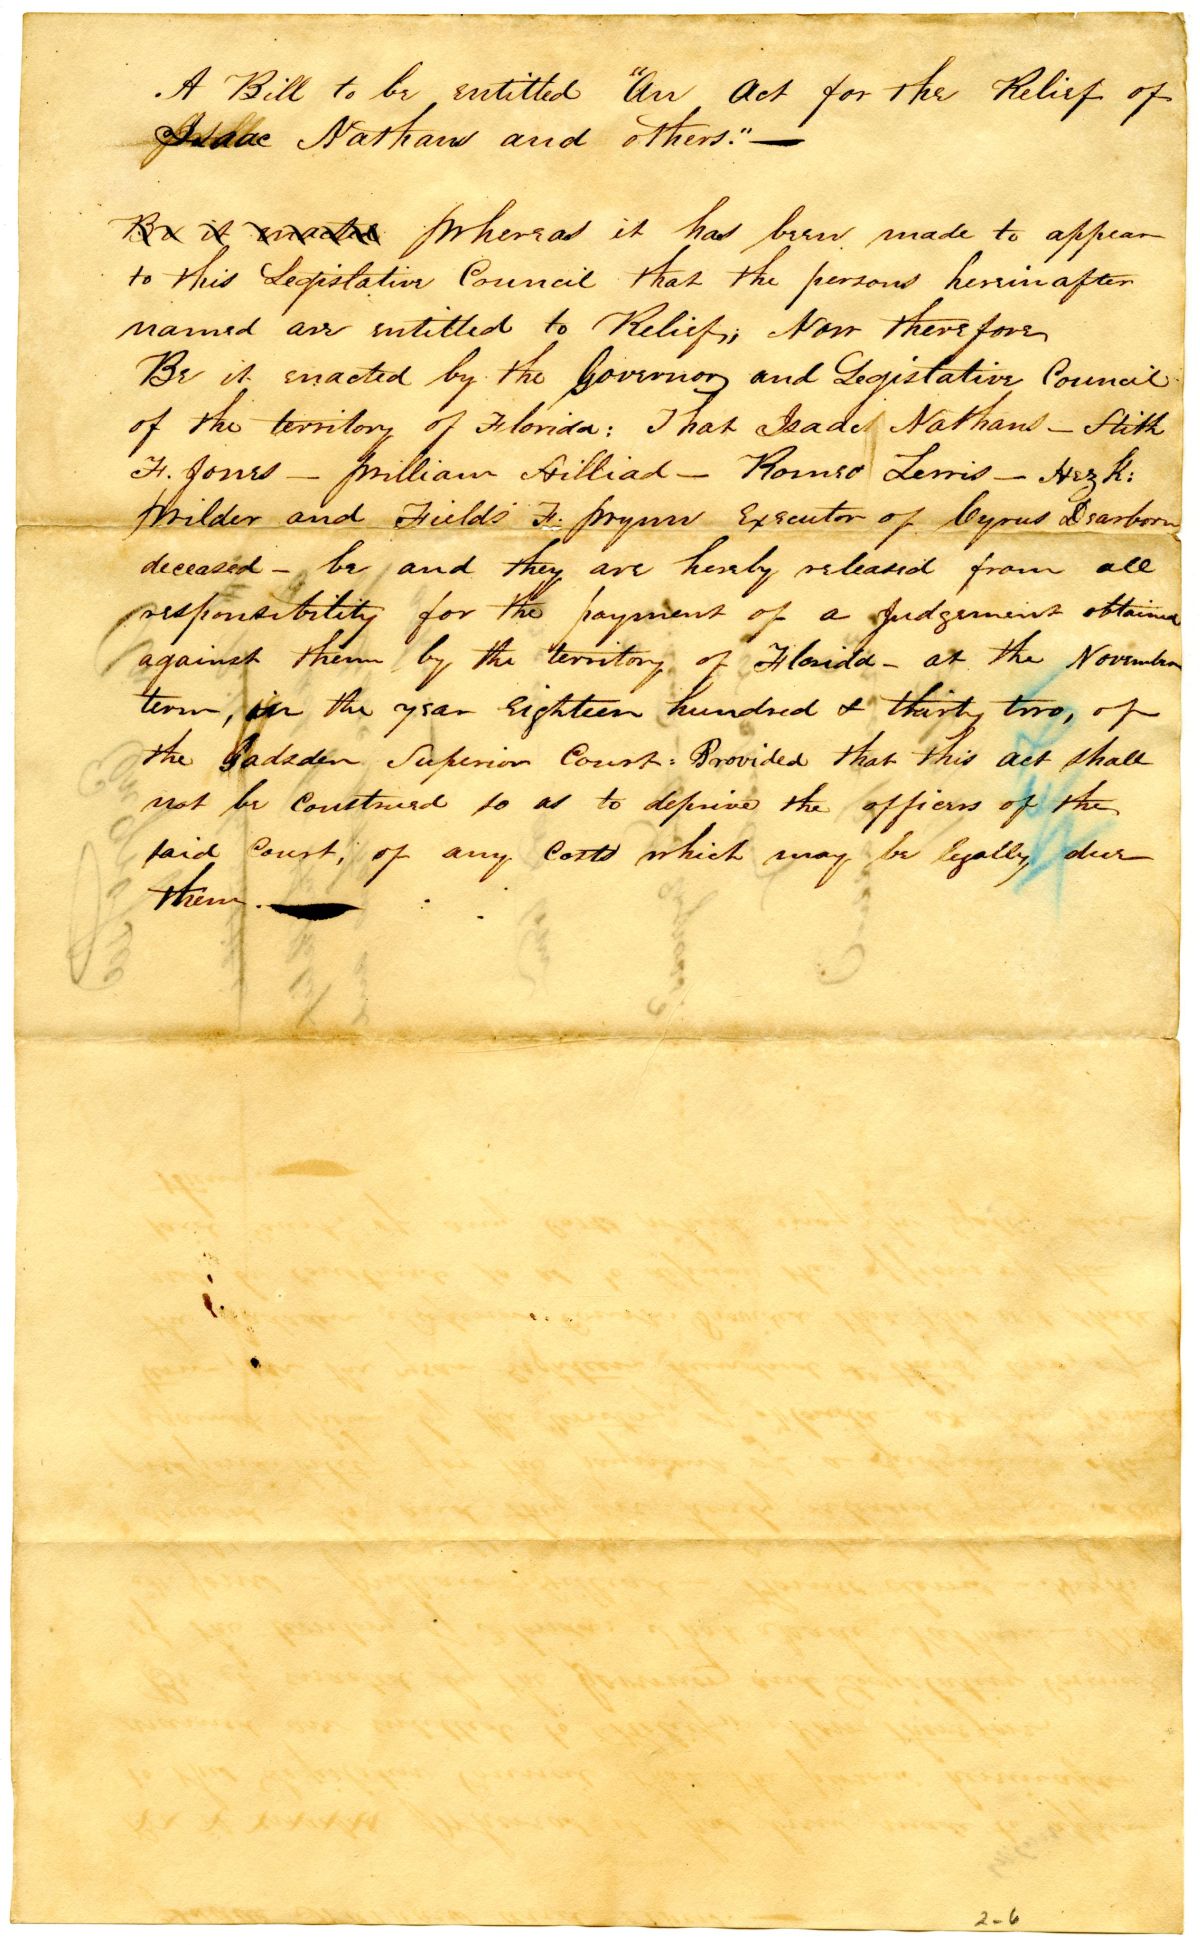 A Bill to be entitled "An Act for the Relief of
Isaac Nathans and others." —
Be it enacted Whereas it has been made to appear
to this Legislative Council that the persons hereinafter
named are entitled to Relief; Now therefore
Be it enacted by the Governor and Legislative Council
of the territory of Florida: That Isaac Nathans — Stith
F. Jones — William Hilliad — Romeo Lewis — Hezk:
Wilder and Fields F. Wynn Executor of Cyrus Dearborn
deceased — be and they are hereby released from all
responsibility for the payment of a Judgement obtained
against them by the territory of Florida — at the November
term, in the year Eighteen hundred & thirty two, of
the Gadsden Superior Court: Provided that this act shall
not be construed so as to deprive the officers of the
said Court, of any Costs which may be legally due
them. —
2-6